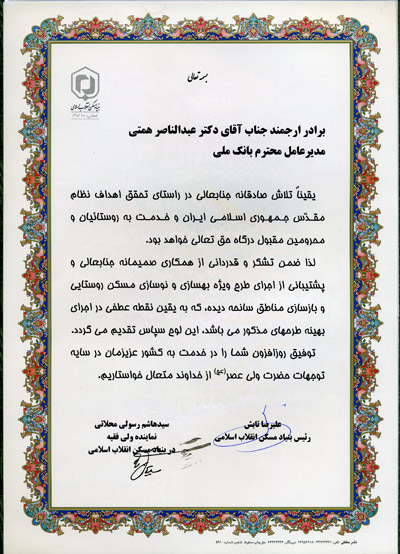 بسمه تعالی
بنیاد مسکن انقلاب اسلامی
برادر ارجمند جناب آقای دکتر عبدالناصر همتی
مدیرعامل محترم بانک ملی
یقیناً تلاش صادقانه جنابعالی در راستای تحقق اهداف نظام
مقدّس جمهوری اسلامی ایران و خدمت به روستائیان و
محرومین مقبول درگاه حق تعالی خواهد بود.
لذا ضمن تشکر و قدردانی از همکاری صمیمانه جنابعالی و
پشتیبانی از اجرای طرح ویژه بهسازی و نوسازی مسکن روستایی
و بازسازی مناطق سانحه دیده، که به یقین نقطه عطفی در اجرای
بهینه طرحهای مذکور می باشد، این لوح سپاس تقدیم می گردد.
توفیق روزافزون شما را در خدمت به کشور عزیزمان در سایه
توجهات حضرت ولی عصر(عج) از خداوند متعال خواستاریم.
علیرضا تابش
رئیس بنیاد مسکن انقلاب اسلامی
سیدهاشم رسولی محلاتی
نماینده ولی فقیه
در بنیاد مسکن انقلاب اسلامی